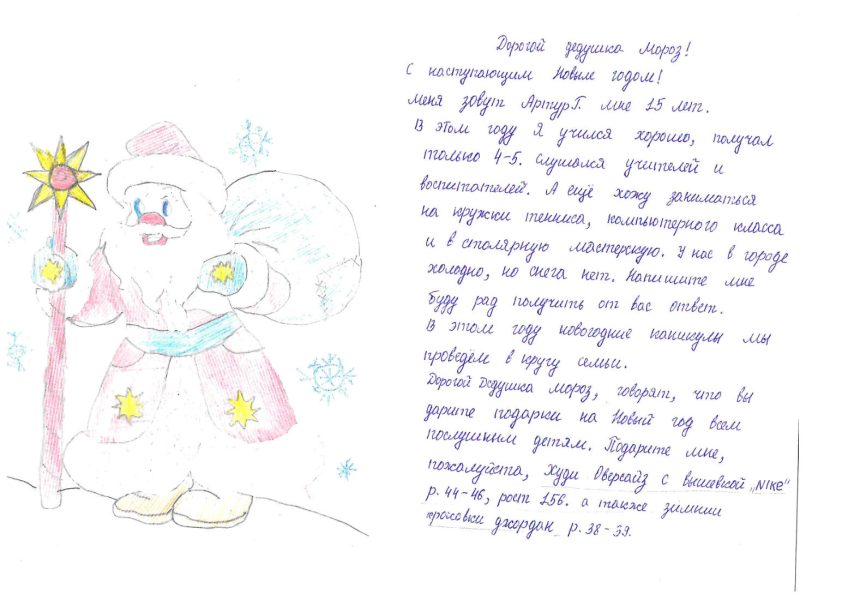 Дорогой дедушка Мороз!
С наступающим Новым годом!
Меня зовут Артур Г. мне 15 лет.
В этом году Я учился хорошо, получал
только 4-5. Слушался учителей и
воспитателей. А ещё хожу заниматься
на кружки тенниса, компьютерного класса
и в столярную мастерскую. У нас в городе
холодно, но снега нет. Напишите мне
буду рад получить от вас ответ.
В этом году новогодние каникулы мы
проведём в кругу семьи.
Дорогой Дедушка Мороз, говорят, что вы
дарите подарки на Новый год всем
послушным детям. Подарите мне,
пожалуйста, Худи Оверсайз с вышевкой „NIKE"
р. 44-46, рост 156. а также зимнии
кросовки джордан р. 38-39.